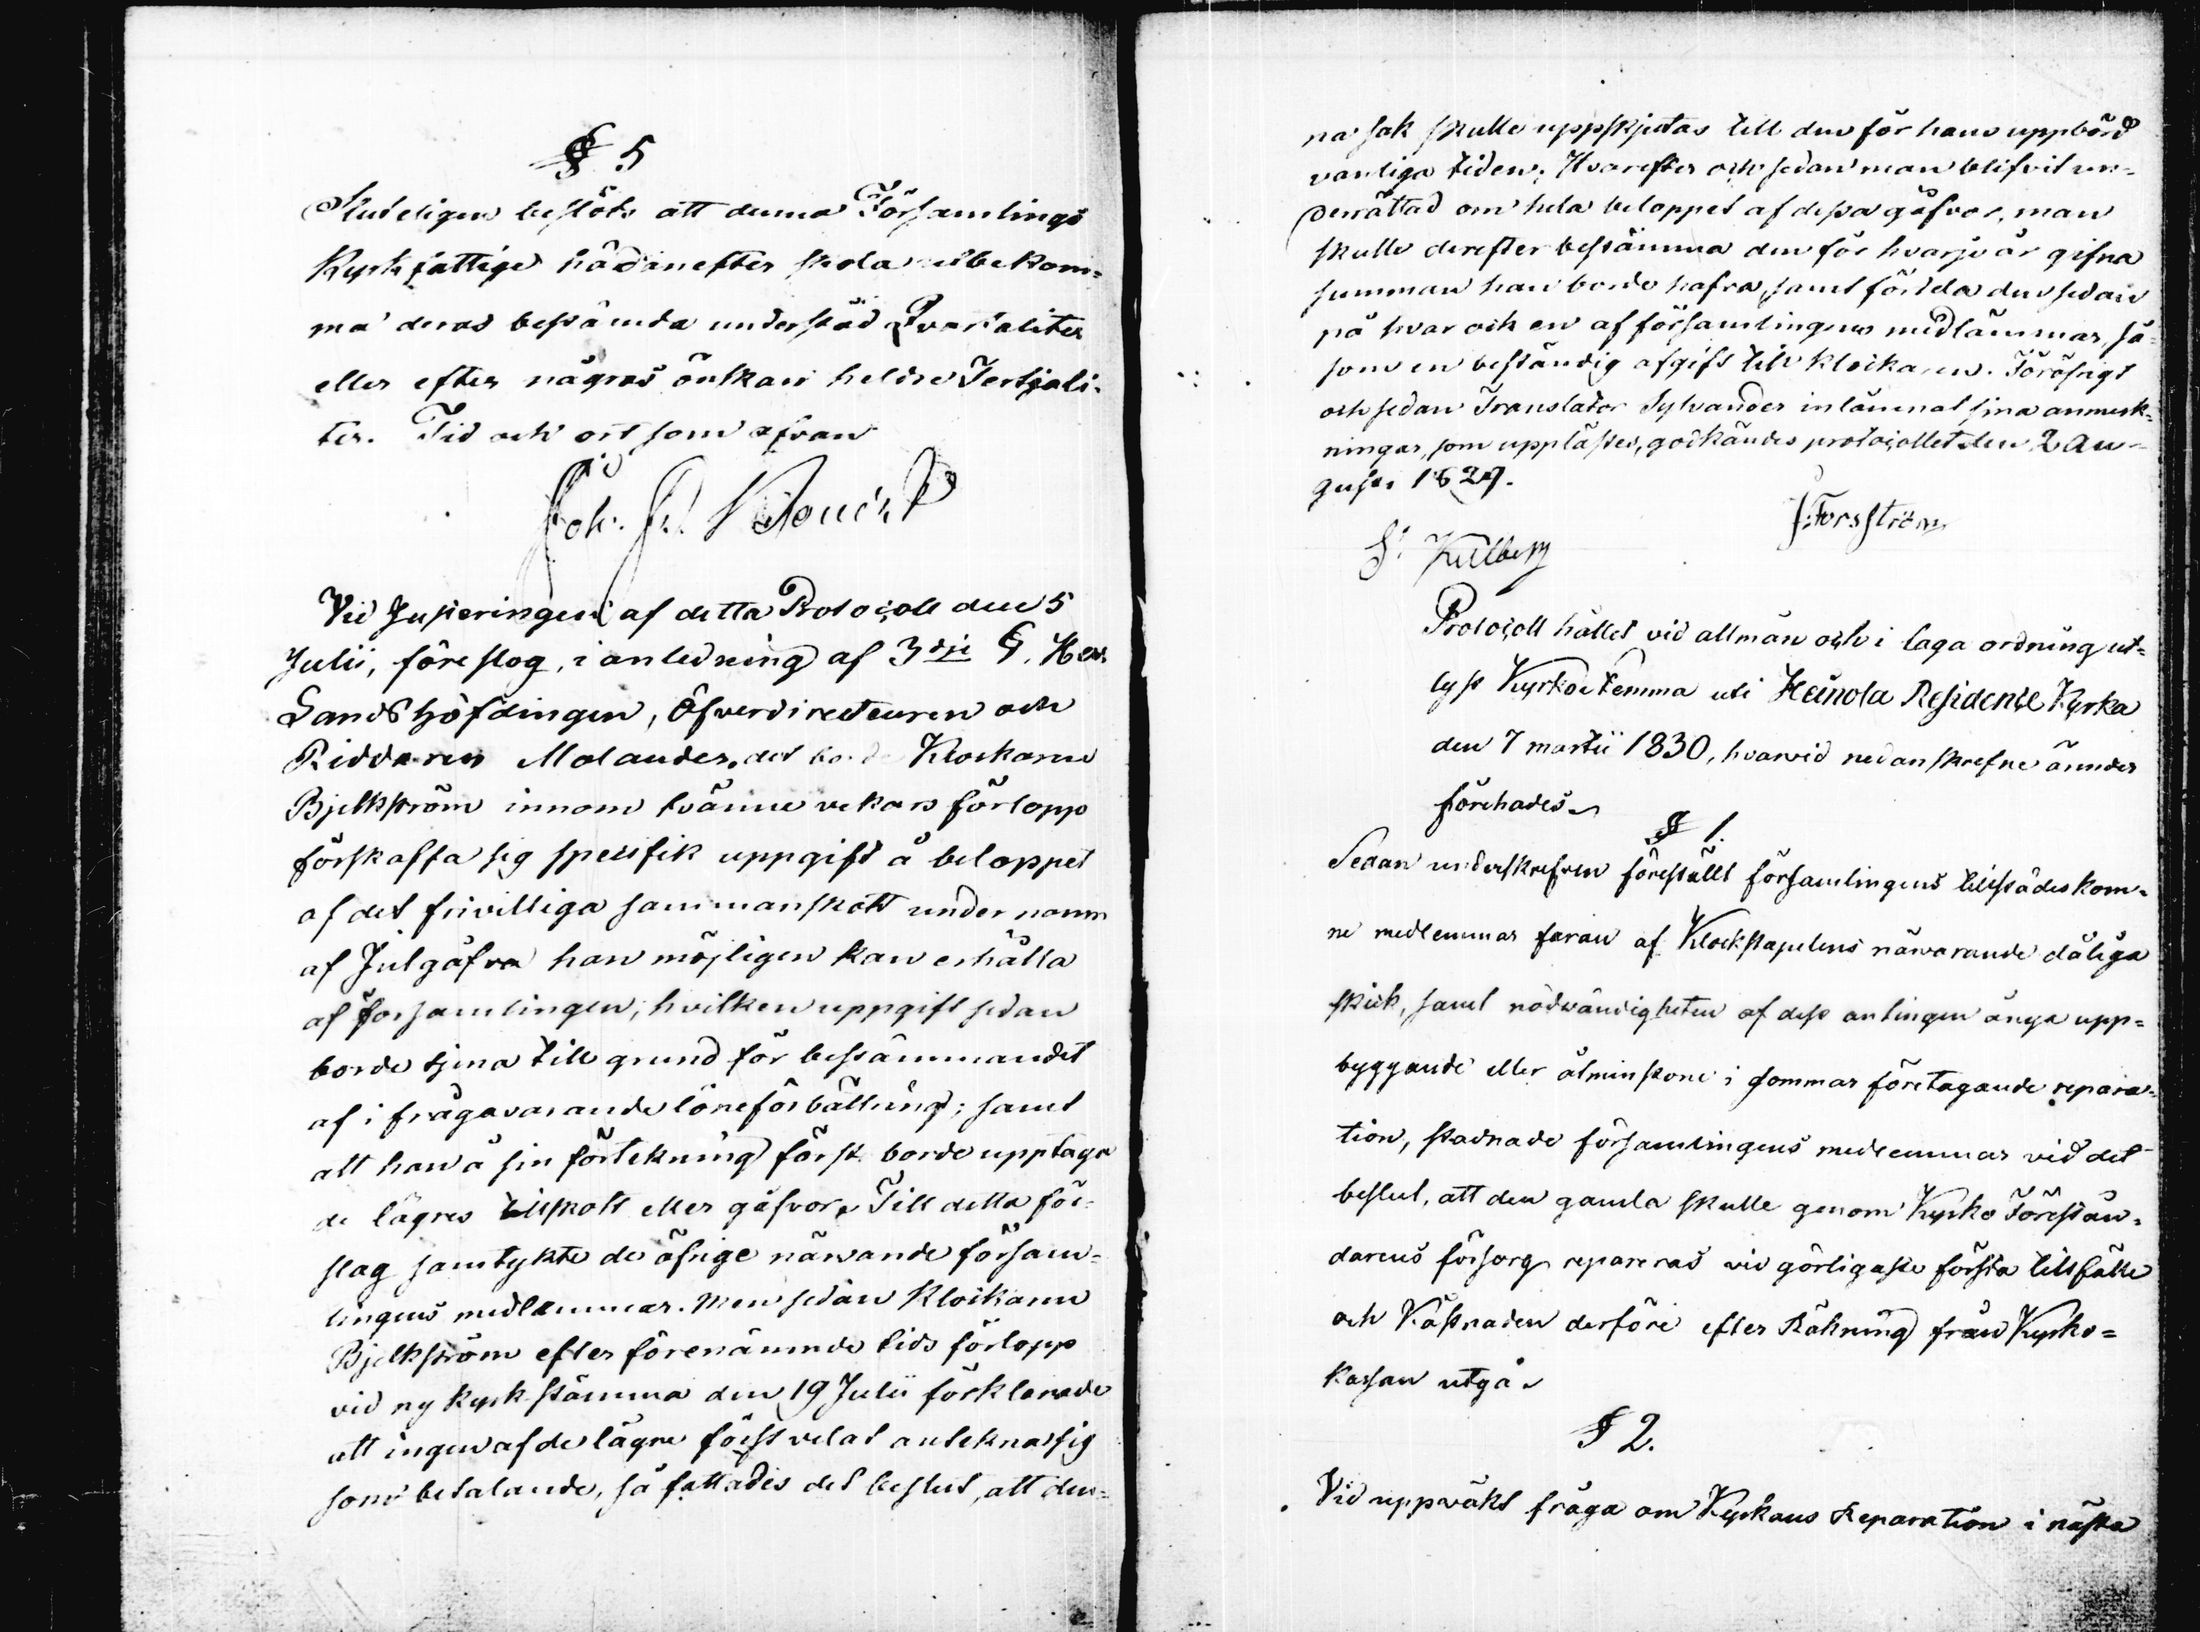 § 5
Sluteligen beslöts att denna Församlings
Kyrkfattige hädanefter skola utbekom=
ma deras bestämda understöd Qvartaliter
eller efter någras önskan heldre Tertiali-
ter. Tid och ort som ofvan
Joh. Fr.
Vid Justeringen af detta Protocoll den 5
Julii, föreslog, i anledning af 3dje §. Herr
Landshöfdingen, Öfverdirecteuren och
Riddaren Molander, det borde Klockaren
Bjelkström innom tvänne vekors förlopp
förskaffa sig specifik uppgift å beloppet
af det frivilliga sammanskott under namn
af Julgåfva han möjligen kan erhålla
af församlingen, hvilken uppgift sedan
borde tjena till grund för bestämmandet
af i frågavarande löneförbättring; samt
att han å sin förtekning först borde upptaga
de lägres tillskott eller gåfvor. Till detta för-
slag samtykte de öfrige närvande försam=
lingens medlemmar. Men sedan Klockaren
Bjelkström efter förenämnde tids förlopp
vid ny kyrkstämma den 19 Julii förklarade
att ingen af de lägre först velat antekna sig
som betalande, så fattades det beslut, att den=
na sak skulle uppskjutas till den för hans uppbörd
vanliga tiden. Hvarefter och sedan man blifvit un=
derrättad om hela beloppet af dessa gåfvor, man
skulle derefter bestämma den för hvarje år gifna
summan han borde hafva, samt fördela den sedan
på hvar och en af församlingens medlämmar, så=
som en beständig afgift till klockaren. Föröfrigt
och sedan Translator Sylvander inlämnat sina anmerk=
ningar, som upplästes, godkändes protocollet den 2 Au=
gusti 1829.
J: Forsström
Killberg
Protocoll hållet vid allmän och i laga ordning ut=
lyst Kyrkostemma uti Heinola Residence Kyrka
den 7 martii 1830, hvarvid nedanskrefne ämnder
förehades.
§ 1.
Sedan underskrefven föreställt församlingens tillstädes kom=
ne medlemmar faran af Klockstapelns närvarande dåliga
skick, samt nödvändigheten af dess antingen ånya upp=
byggande eller åtminstone i sommar företagande repara=
tion, stadnade församlingens medlemmar vid det
beslut, att den gamla skulle genom Kyrko Förestån=
darens försorg repareras vid görligaste första tillfälle
och Kåstnaden derföre efter Räkning från Kyrko=
kassan utgå.
§ 2.
Vid uppväkt fråga om Kyrkans Reparation i nästa